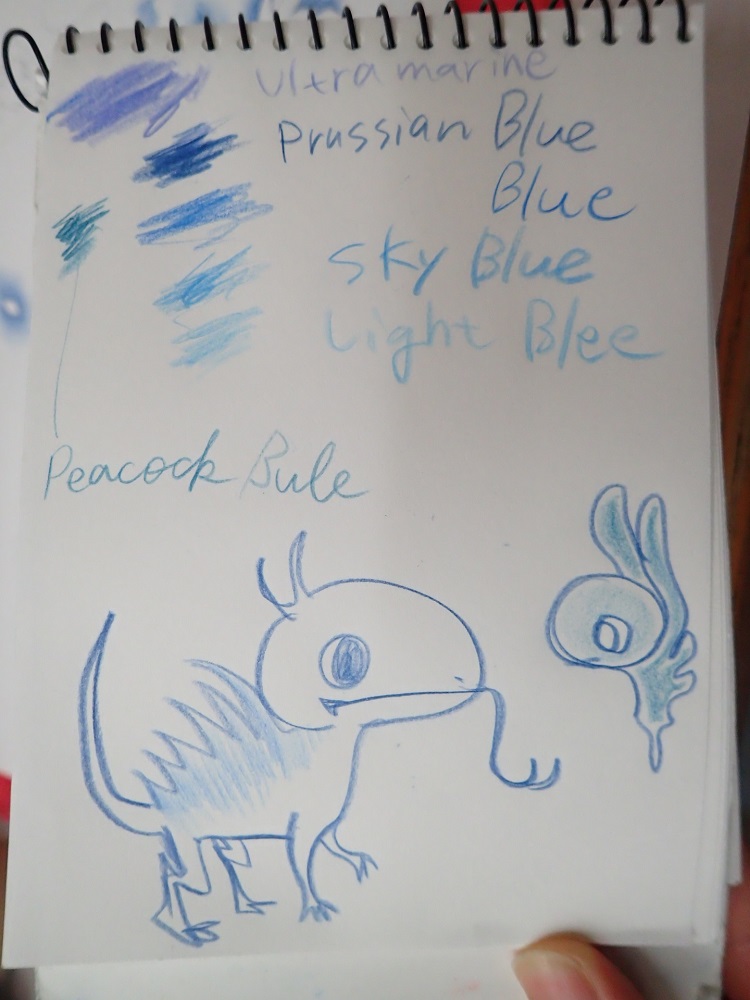 Ultramarine
Prussian Blue
Blue
Sky Blue
Light Blee
Peacock Bule